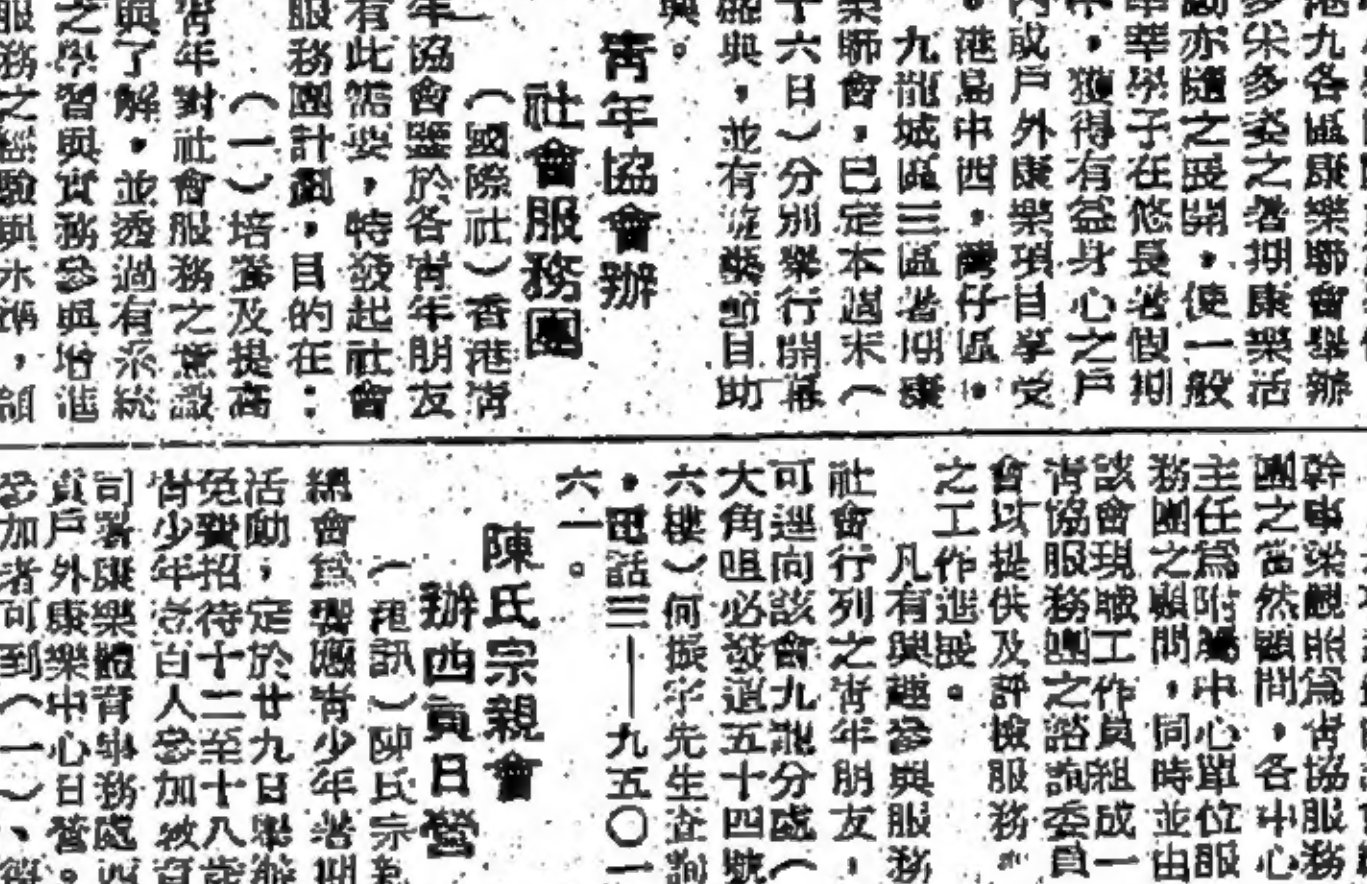 港九各區康樂聯會舉辦
多采多姿之暑期康樂活
動亦隨之展開，使一般
莘莘學子在悠長暑假期
中，獲得有益身心之戶
內或戶外康樂項目享受
。港島中西，灣仔區，
九龍城區三區暑期康
樂聯會，已定本週末（
十六日）分別舉行開幕
盛典，並有遊藝節目助
興。
青年協會辦
社會服務團
（國際社）香港青
年協會鑒於各青年朋友
有此需要，特發起社會
服務團計劃，目的在：
（一）培養及提高
青年對社會服務之意識
與了解，並透過有系統
之學習與實務參與增進
服務之經驗與水準，
幹事梁觀照為青協服務
團之當然顧問，各中心
主任為附屬中心單位服
務團之顧問，同時並由
該會現職工作員組成一
青協服務團之諮詢委員
會以提供及評檢服務
之工作進展。
凡有興趣參與服務
社會行列之青年朋友，
可逕向該會九龍分處（
大角咀必發道五十四號
六樓）何振宇先生查詢
，電話三——九五〇一
六一。
陳氏宗親會
辦西貢日營
（港訊）陳氏宗親
總會為響應青少年暑期
活動，定於廿九日舉辦
免費招待十二至十八歲
青少年壱百人參加
司署康樂體育事務處西
貢戶外康樂中心日營。
參加者可到（一）、